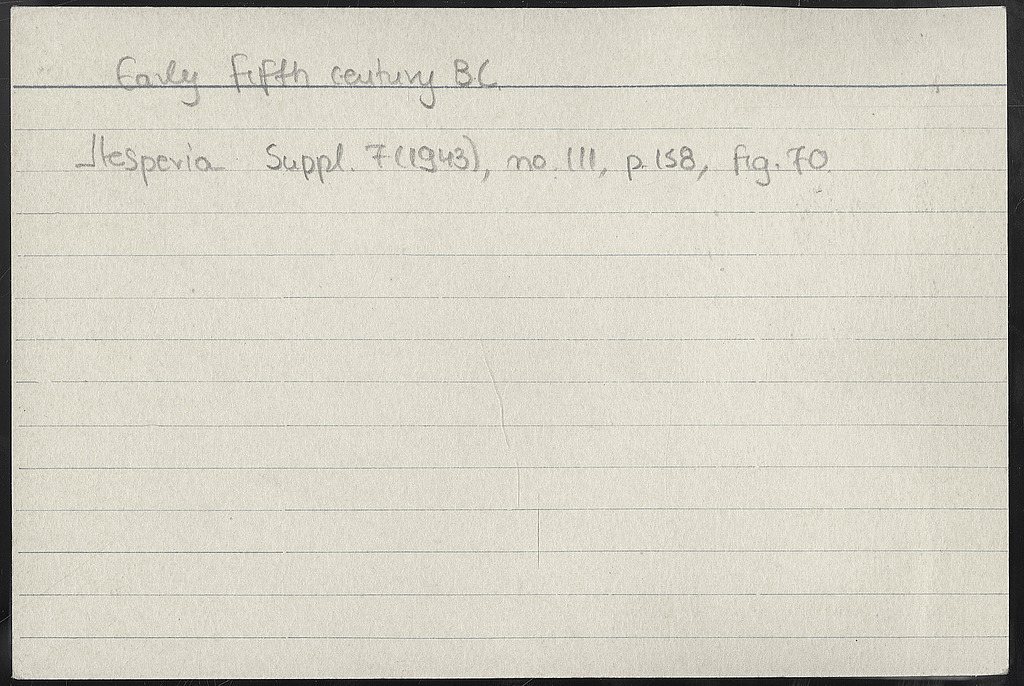 Early fifth century B.C.
Hesperia Suppl. 7 (1943), no. 111, p. 158, fig. 70.